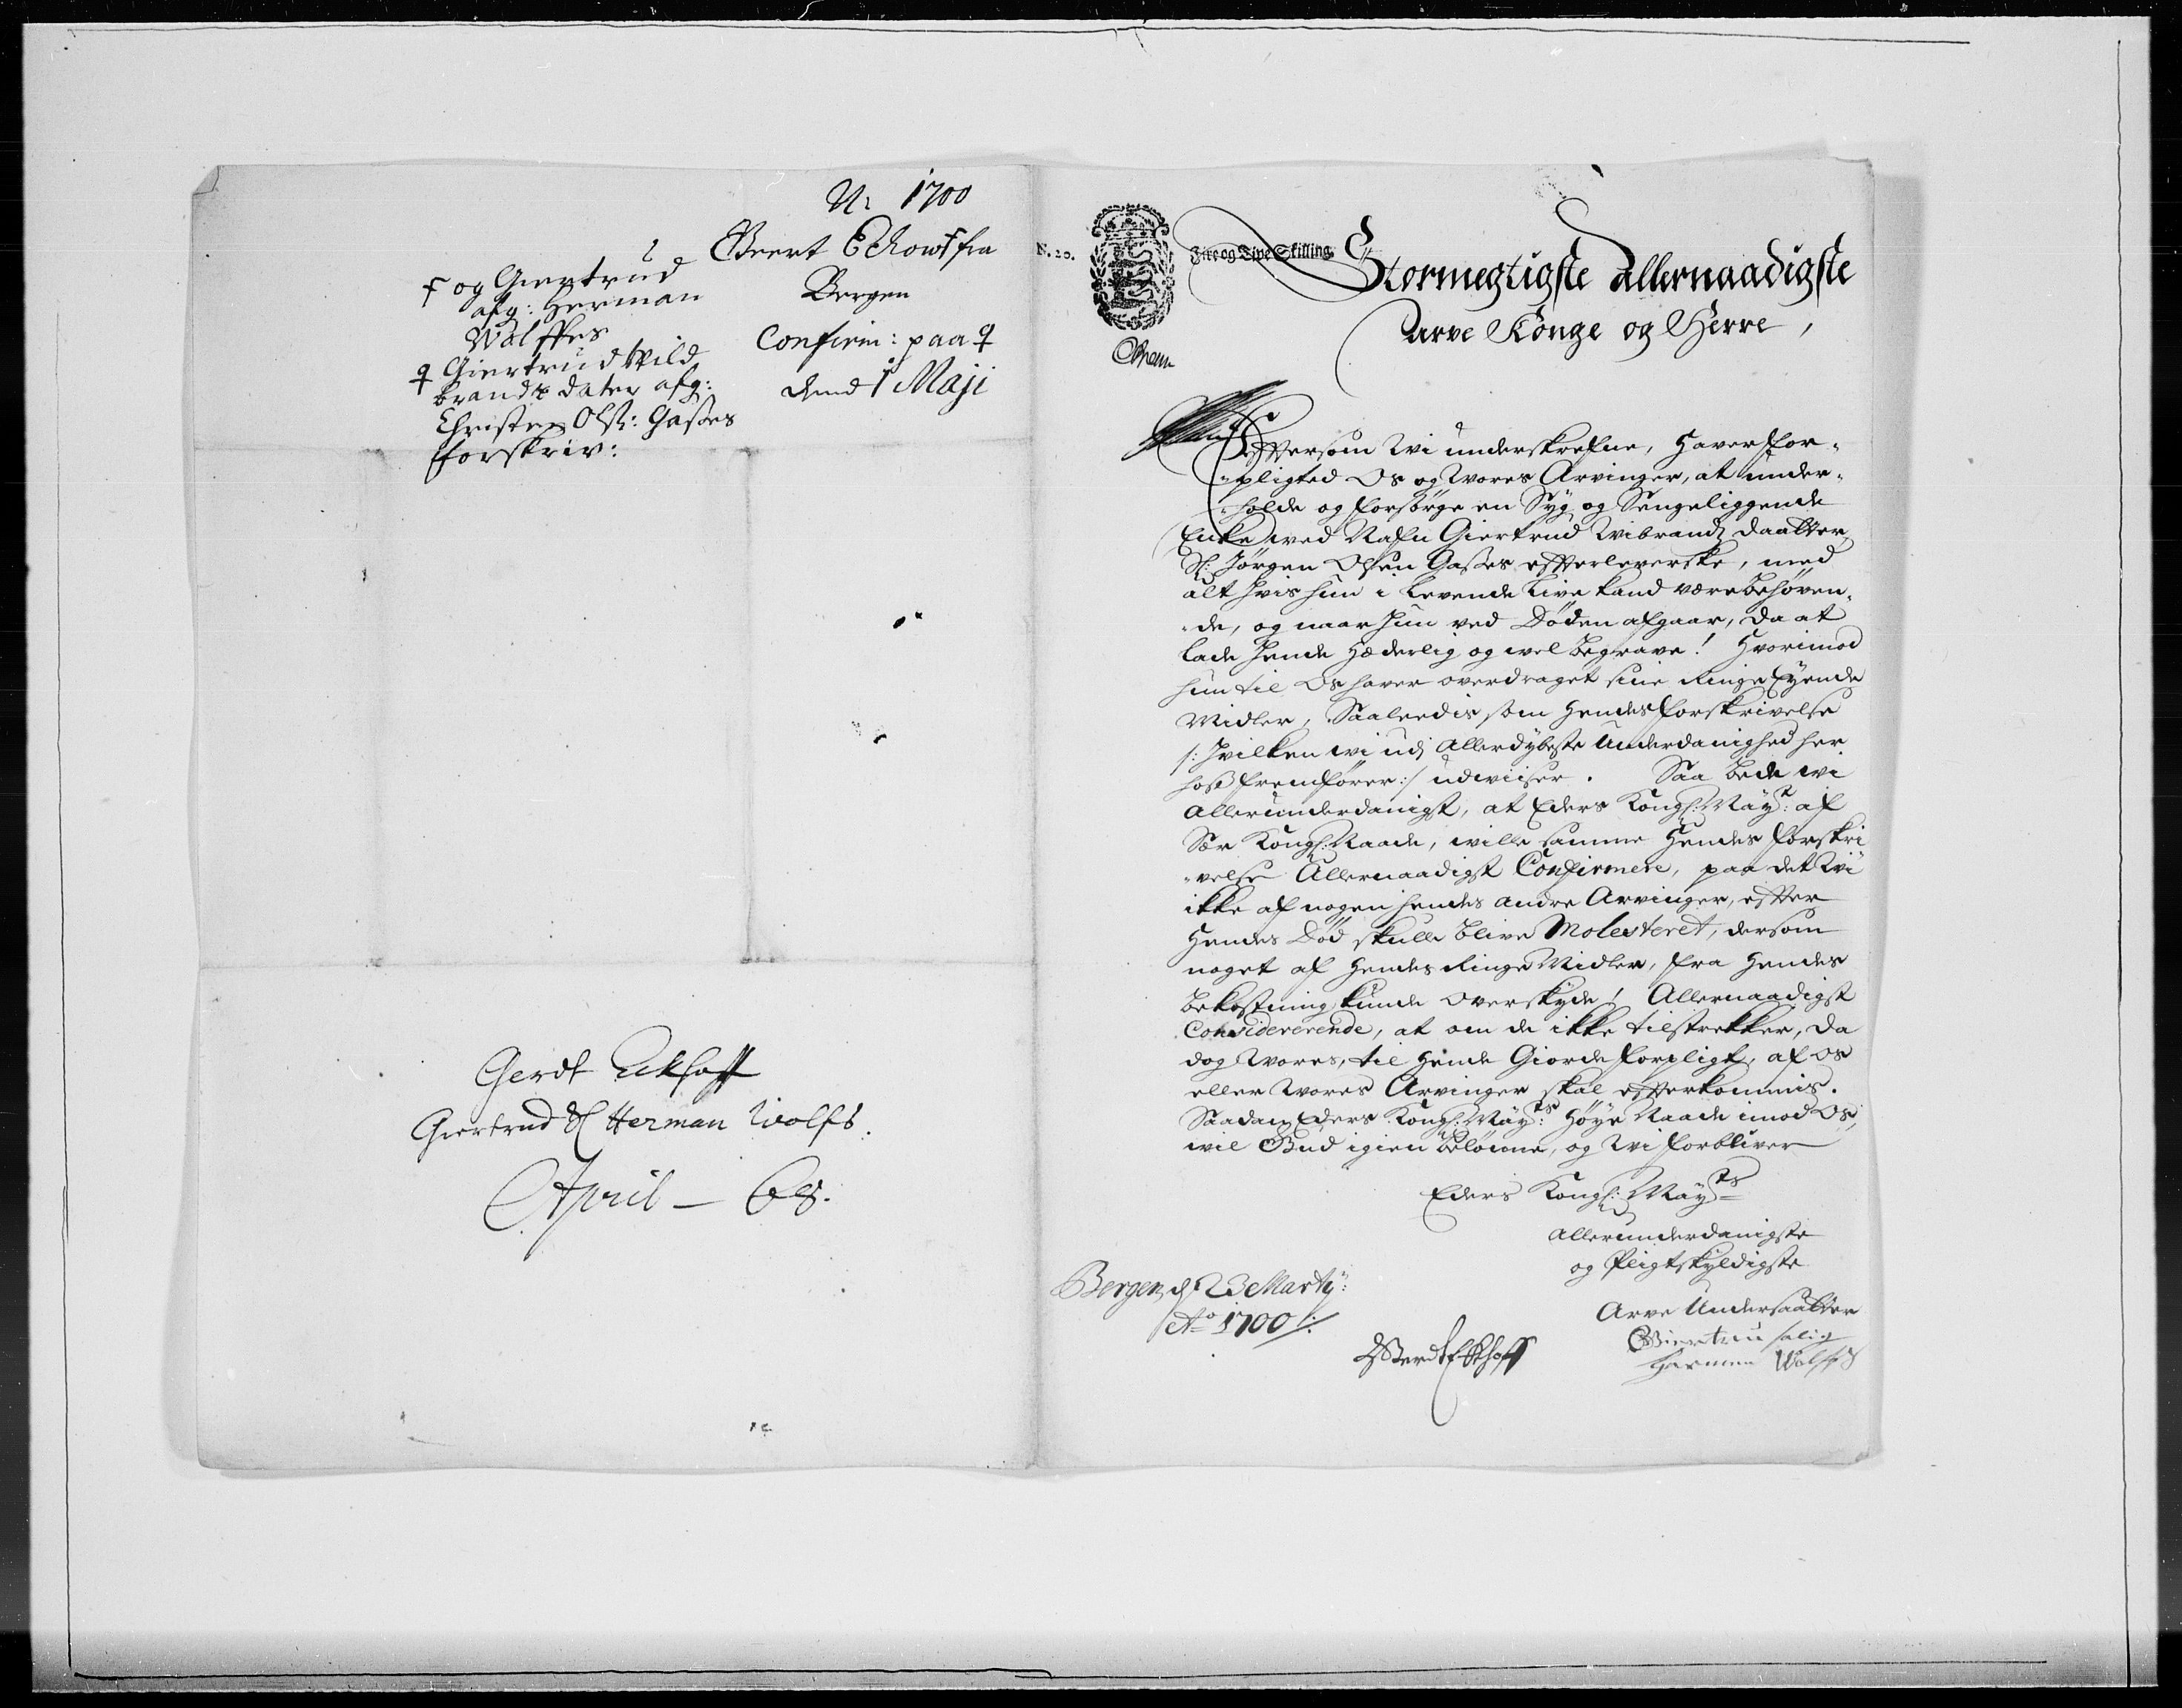 N: 1700
Geert Echowf fra
Bergen
Confirm: paa ♀
dend 1 Maji
† og Giertrud
afg: Herman
Wolffes
♀ Giertrud Wild
brandtz dater afg:
Christen Olss: Gasses
forskriv:
Gerdt Eckhoff
Giertrud Sl Herman Wolfs.
April – 68.
N. 20.
Fire og Tive Skilling.
Stormegtigste Allernaadigste
Arve Konge og Herre,
Eftersom Wi underskrefne, hafver for-
-pligted Os og Wores Arvinger, at under-
-holde og forsørge en Syg og Sengeliggende
Encke wed Nafn Giertrud Wibrandz daatter
Sl: Jörgen Olsen Gasses effterleverske, med
alt hvis hun i levende Live kand være behøven-
-de, og naar hun ved Døden afgaar, da at
lade hende Hæderlig og wel begrave! Hvorimod
hun til Os haver overdraget sine Ringe Eyende
Midler, Saaleedis som hendes forskrivelse
/: hvilken wi udj Allerdybeste Underdanighed her
hoss fremfører :/ udwiiser. Saa bede wi
Allerunderdanigst, at Eders Kongl: Mayt: af
Sær Kongl: Naade, wille samme Hendes forskri
-velse Allernaadigst Confirmere, paa det Wi
ikke af nogen hendes andre Arvinger, effter
Hendes Død skulle blive Molesteret, dersom
noget af Hendes Ringe Midler, fra Hendes
bekostning kunde overskyde! Allernaadigst
Considererende, at om de ikke tilstrekker, da
dog Wores, til Hende Giorde forpligt, af os
eller Wores Arvinger skal effterkommis.
Saadan Eders Kongl: Mayts: Høye Naade imod Os,
wil Gud igien belønne, og Wi forbliver
Eders Kongl: Mayts
Allerunderdanigste
og Pligtskyldigste
Arve Undersaatter
Bergen d: 23 Martij:
Ao 1700 /:
Gerdt Eckhoff
Giertru salig
Harmen Wolfs